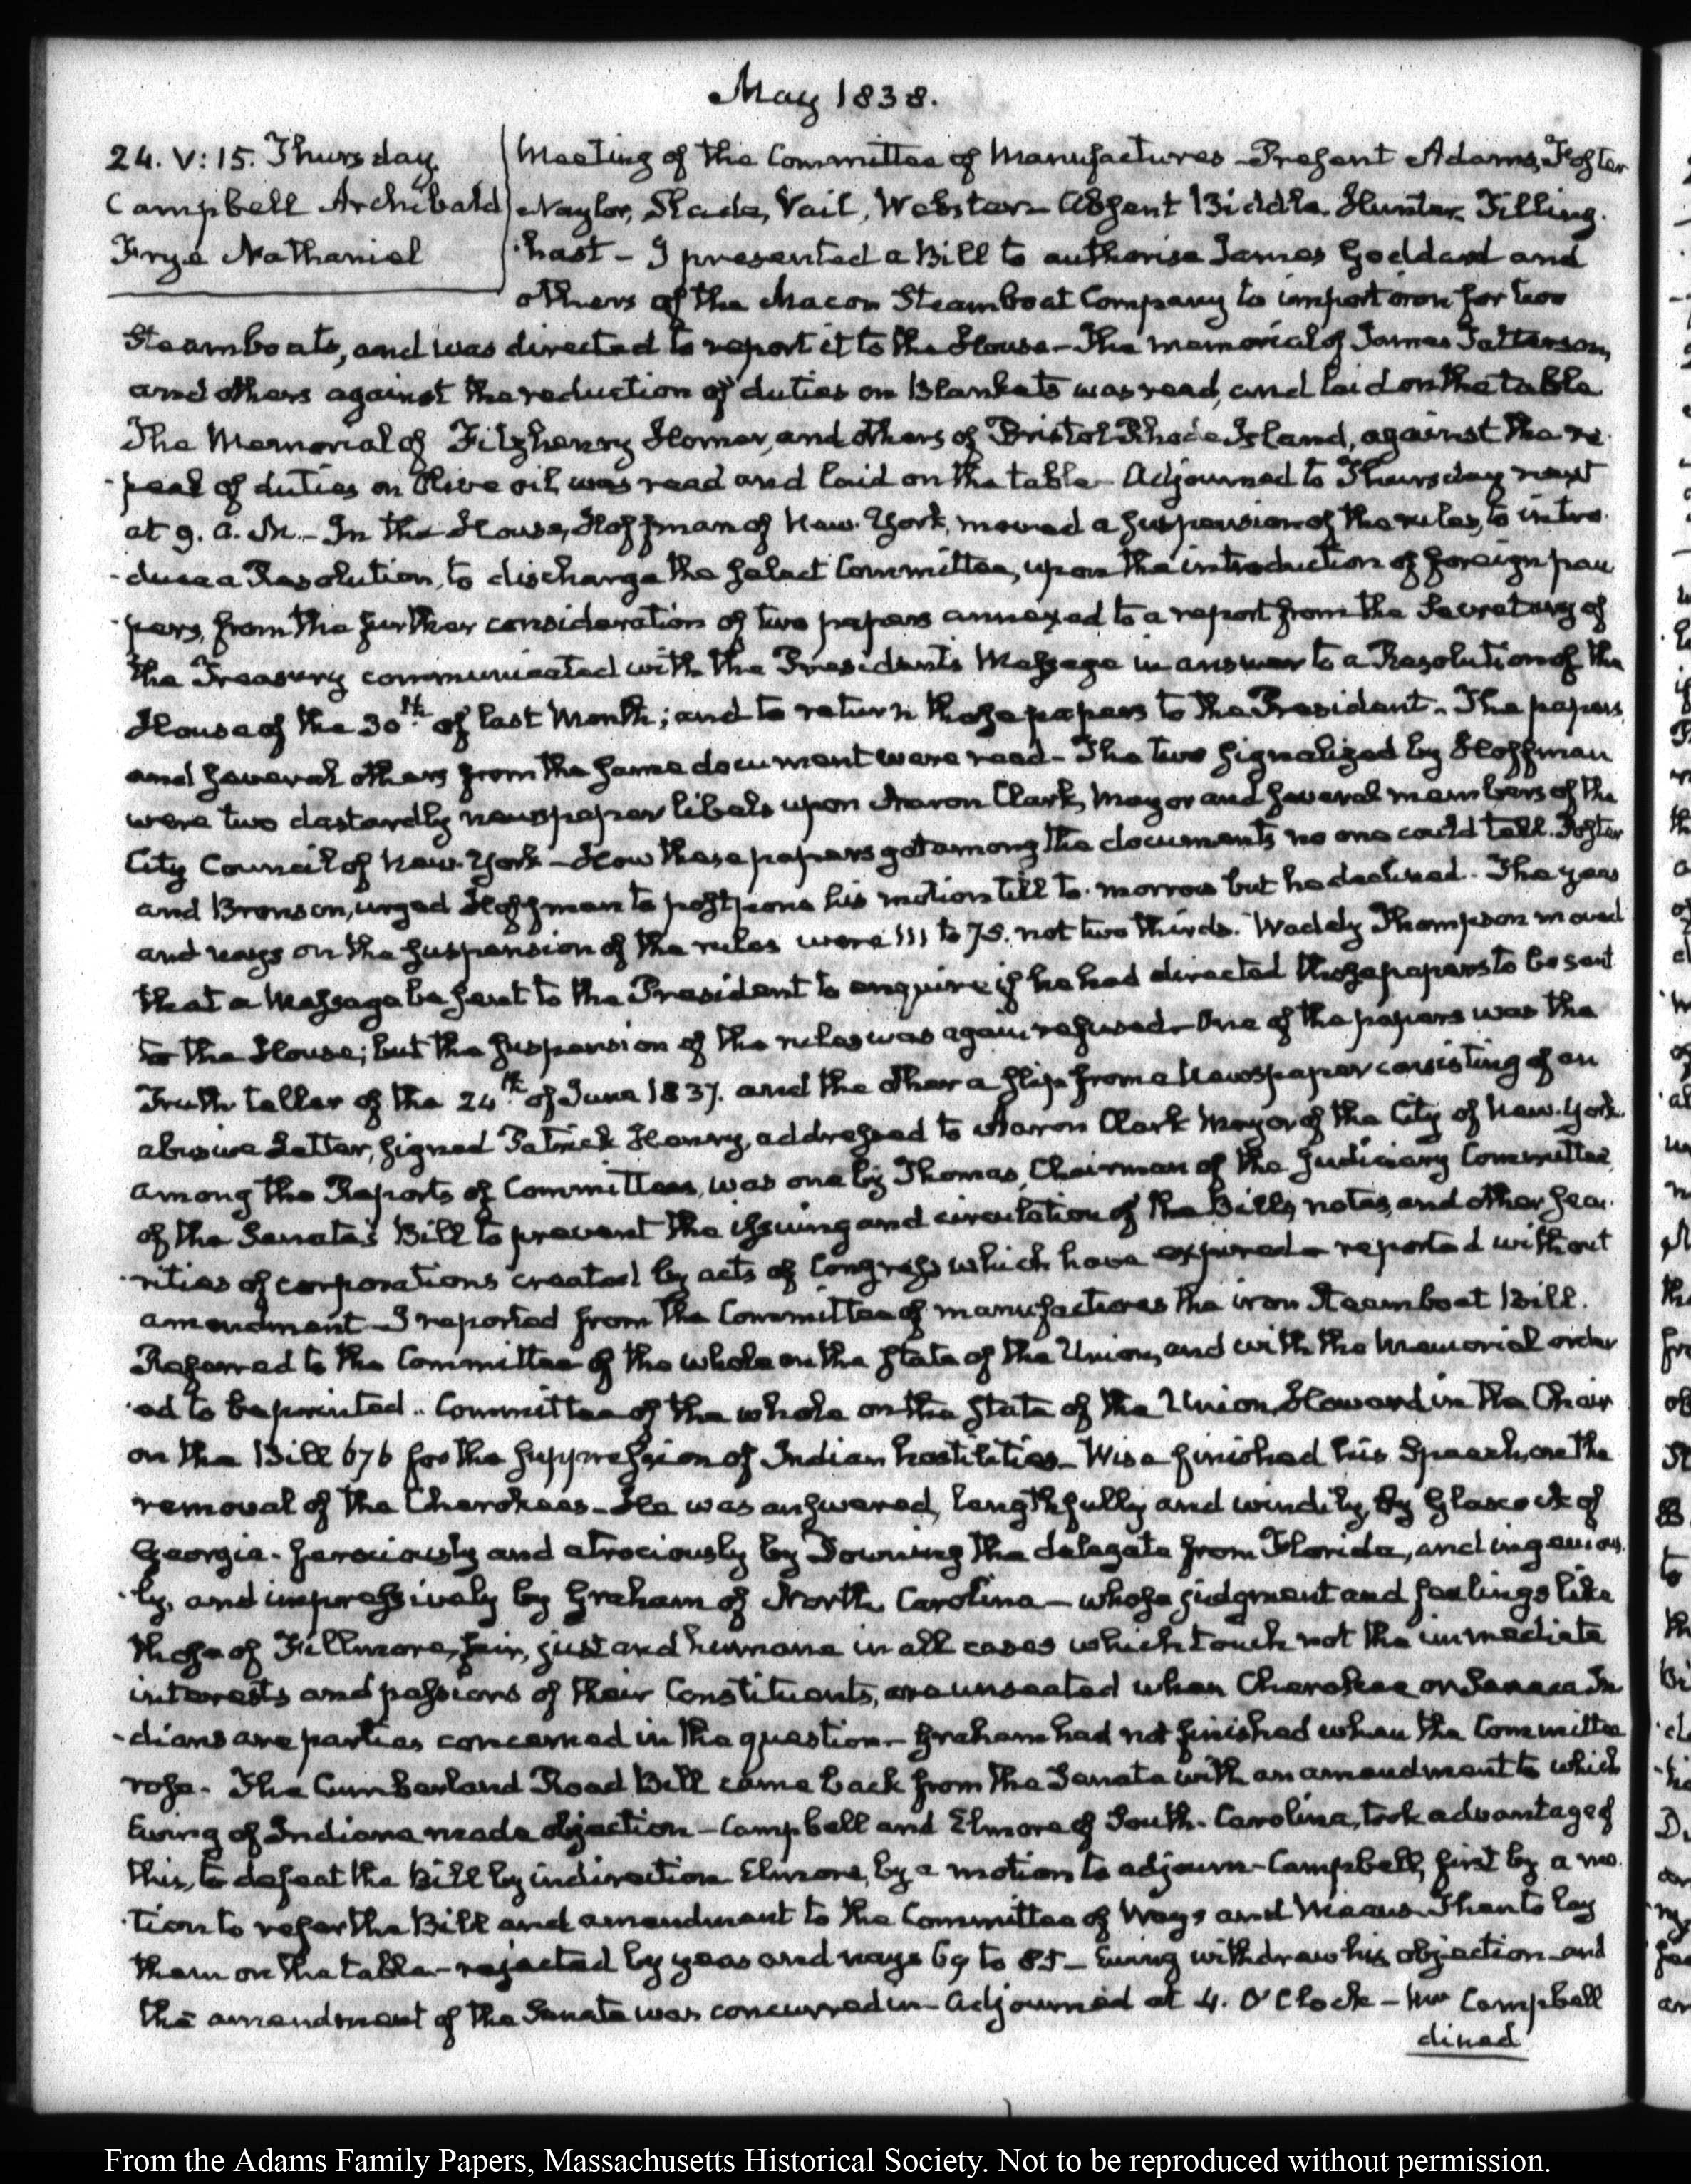 May 1838.
24. V: 15. Thursday.
Campbell Archibald
Frye Nathaniel
Meeting of the Committee of Manufactures - Present Adams, Foster
Naylor, Slade, Vail, Webster - Absent Biddle. Hunter. Tilling-
-hast - I presented a Bill to authorise James Goddard and
others of the Macon Steamboat Company to import iron for two
Steamboats, and was directed to report it to the House - The memorial of James Patterson,
and others against the reduction of duties on Blankets was read, and laid on the table
The Memorial of Fitzhenry Homer, and others of Bristol Rhode Island, against the re-
-peal of duties on Olive oil, was read and laid on the table - Adjourned to Thursday next
at 9. a. M. - In the House, Hoffman of New-York, moved a suspension of the rules, to intro-
-duce a Resolution, to discharge the select Committee, upon the introduction of foreign pau
-pers, from the further consideration of two papers annexed to a report from the Secretary of
the Treasury communicated with the President's Message in answer to a Resolution of the
House of the 30th. of last Month; and to return those papers to the President. The papers
and several others from the same document were read - The two signalized by Hoffman
were two dastardly newspaper libels upon Aaron Clark, Mayor and several members of the
City Council of New-York - How these papers got among the documents no one could tell. Foster
and Bronson, urged Hoffman to postpone his motion till to-morrow but he declined. The yeas
and nays on the suspension of the rules were 111 to 75. not two thirds. Waddy Thompson moved
that a Message be sent to the President to enquire if he had directed those papers to be sent
to the House; but the suspension of the rules was again refused - One of the papers was the
Truth teller of the 24th. of June 1837. and the other a slip from a Newspaper consisting of an
abusive Letter, signed Patrick Henry, addressed to Aaron Clark Mayor of the City of New-York.
Among the Reports of Committees, was one by Thomas, Chairman of the Judiciary Committee,
of the Senate's Bill to prevent the issuing and circulation of the Bills, notes, and other secu-
-rities of corporations created by acts of Congress which have expired - reported without
amendment - I reported from the Committee of manufactures the iron Steamboat Bill.
Referred to the Committee of the whole on the state of the Union, and with the Memorial order
-ed to be printed.. Committee of the whole on the state of the Union, Howard in the Chair
on the Bill 676 for the suppression of Indian hostilities - Wise finished his Speech, on the
removal of the Cherokees - He was answered, lengthfully and windily, by Glascock of
Georgia - ferociously and atrociously by Downing the delegate from Florida, and ingenious-
-ly, and impressively by Graham of North Carolina - whose judgment and feelings like
those of Fillmore, fair, just and humane in all cases which touch not the immediate
interests and passions of their Constituents, are unseated when Cherokee or Seneca In
-dians are parties concerned in the question - Graham had not finished when the Committee
rose. The Cumberland Road Bill came back from the Senate with an amendment to which
Ewing of Indiana made objection - Campbell and Elmore of South-Carolina, took advantage of
this, to defeat the Bill by indirection Elmore, by a motion to adjourn - Campbell, first by a mo-
-tion to refer the Bill and amendment to the Committee of Ways and Means - Then to lay
them on the table - rejected by yeas and nays 69 to 85 - Ewing withdrew his objection - and
the amendment of the Senate was concurred in - Adjourned at 4. O'Clock - Mr Campbell
dined
From the Adams Family Papers, Massachusetts Historical Society. Not to be reproduced without permission.